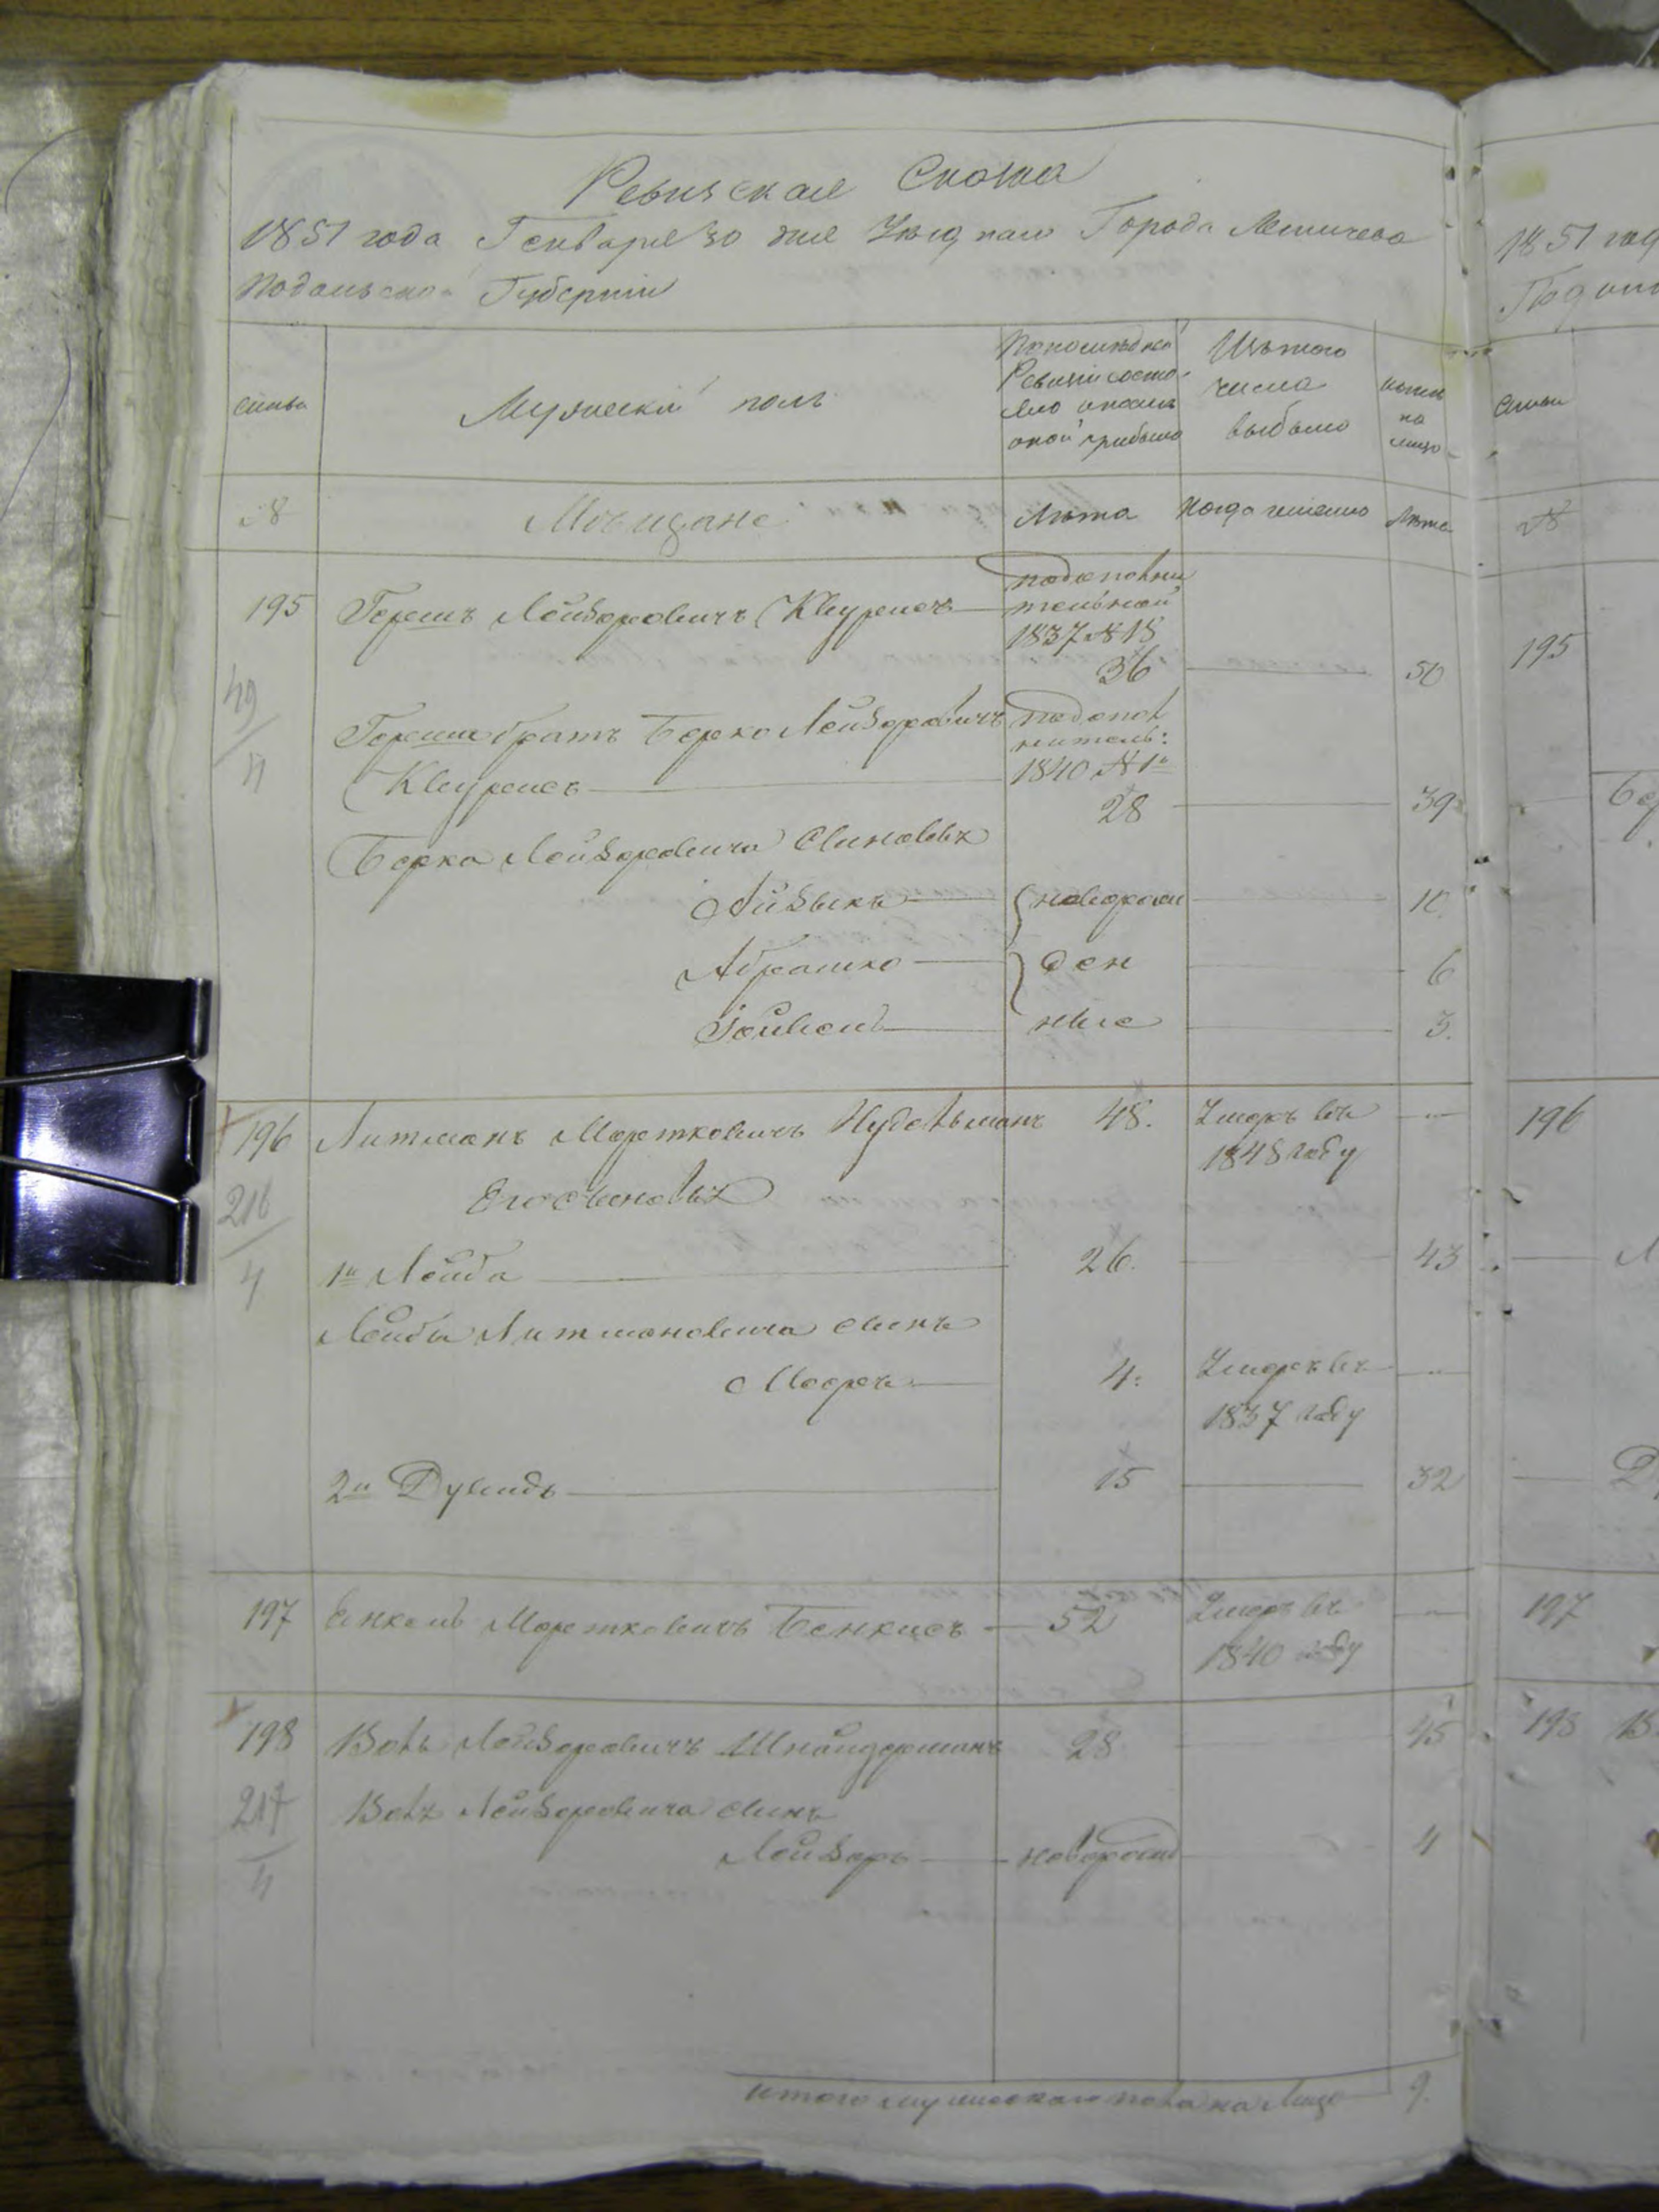 Ревизская Сказка
1851 года Генваря 30 дня Уезднаго Города Летичева
Подольской Губернии
семьи
Мужескій полъ
По последней
Ревизіи состо-
яло и после
оной прибыло
Изъ того
числа
выбыло
ныне
на
лицо
№
Мещане
Лета
Когда именно
Лета
195 Гершъ Лейзоровичъ
по дополни
тельной
1837 № 18
36 50
49
4
Герша братъ Берко Лейзоровичъ
по допол
нитель:
1840 № 1й
28 39
Берка Лейзоровича Сыновья
Айзыкъ новорож 10.
Абрашко ден 6
ные 3.
196 Литманъ Мортковичъ Нудельманъ 48. Умеръ въ
1848 году
216
4
Его сыновья
1й Лейба 26. 43
Лейбы Литмановича сынъ
4. Умеръ въ
1837 году
2й Дувидъ 15 32
197 Енкель Мортковичъ 52 Умеръ въ
1840 году
198 Воль Лейзоровичъ Шнайдерманъ 28 45
217
4
Воля Лейзоровича сынъ
Лейзоръ новорожд 4
итого мужескаго пола на лицо 9.
1851 год
Подол
семьи
№
195
Бер
196
Л
Д
197
198 В